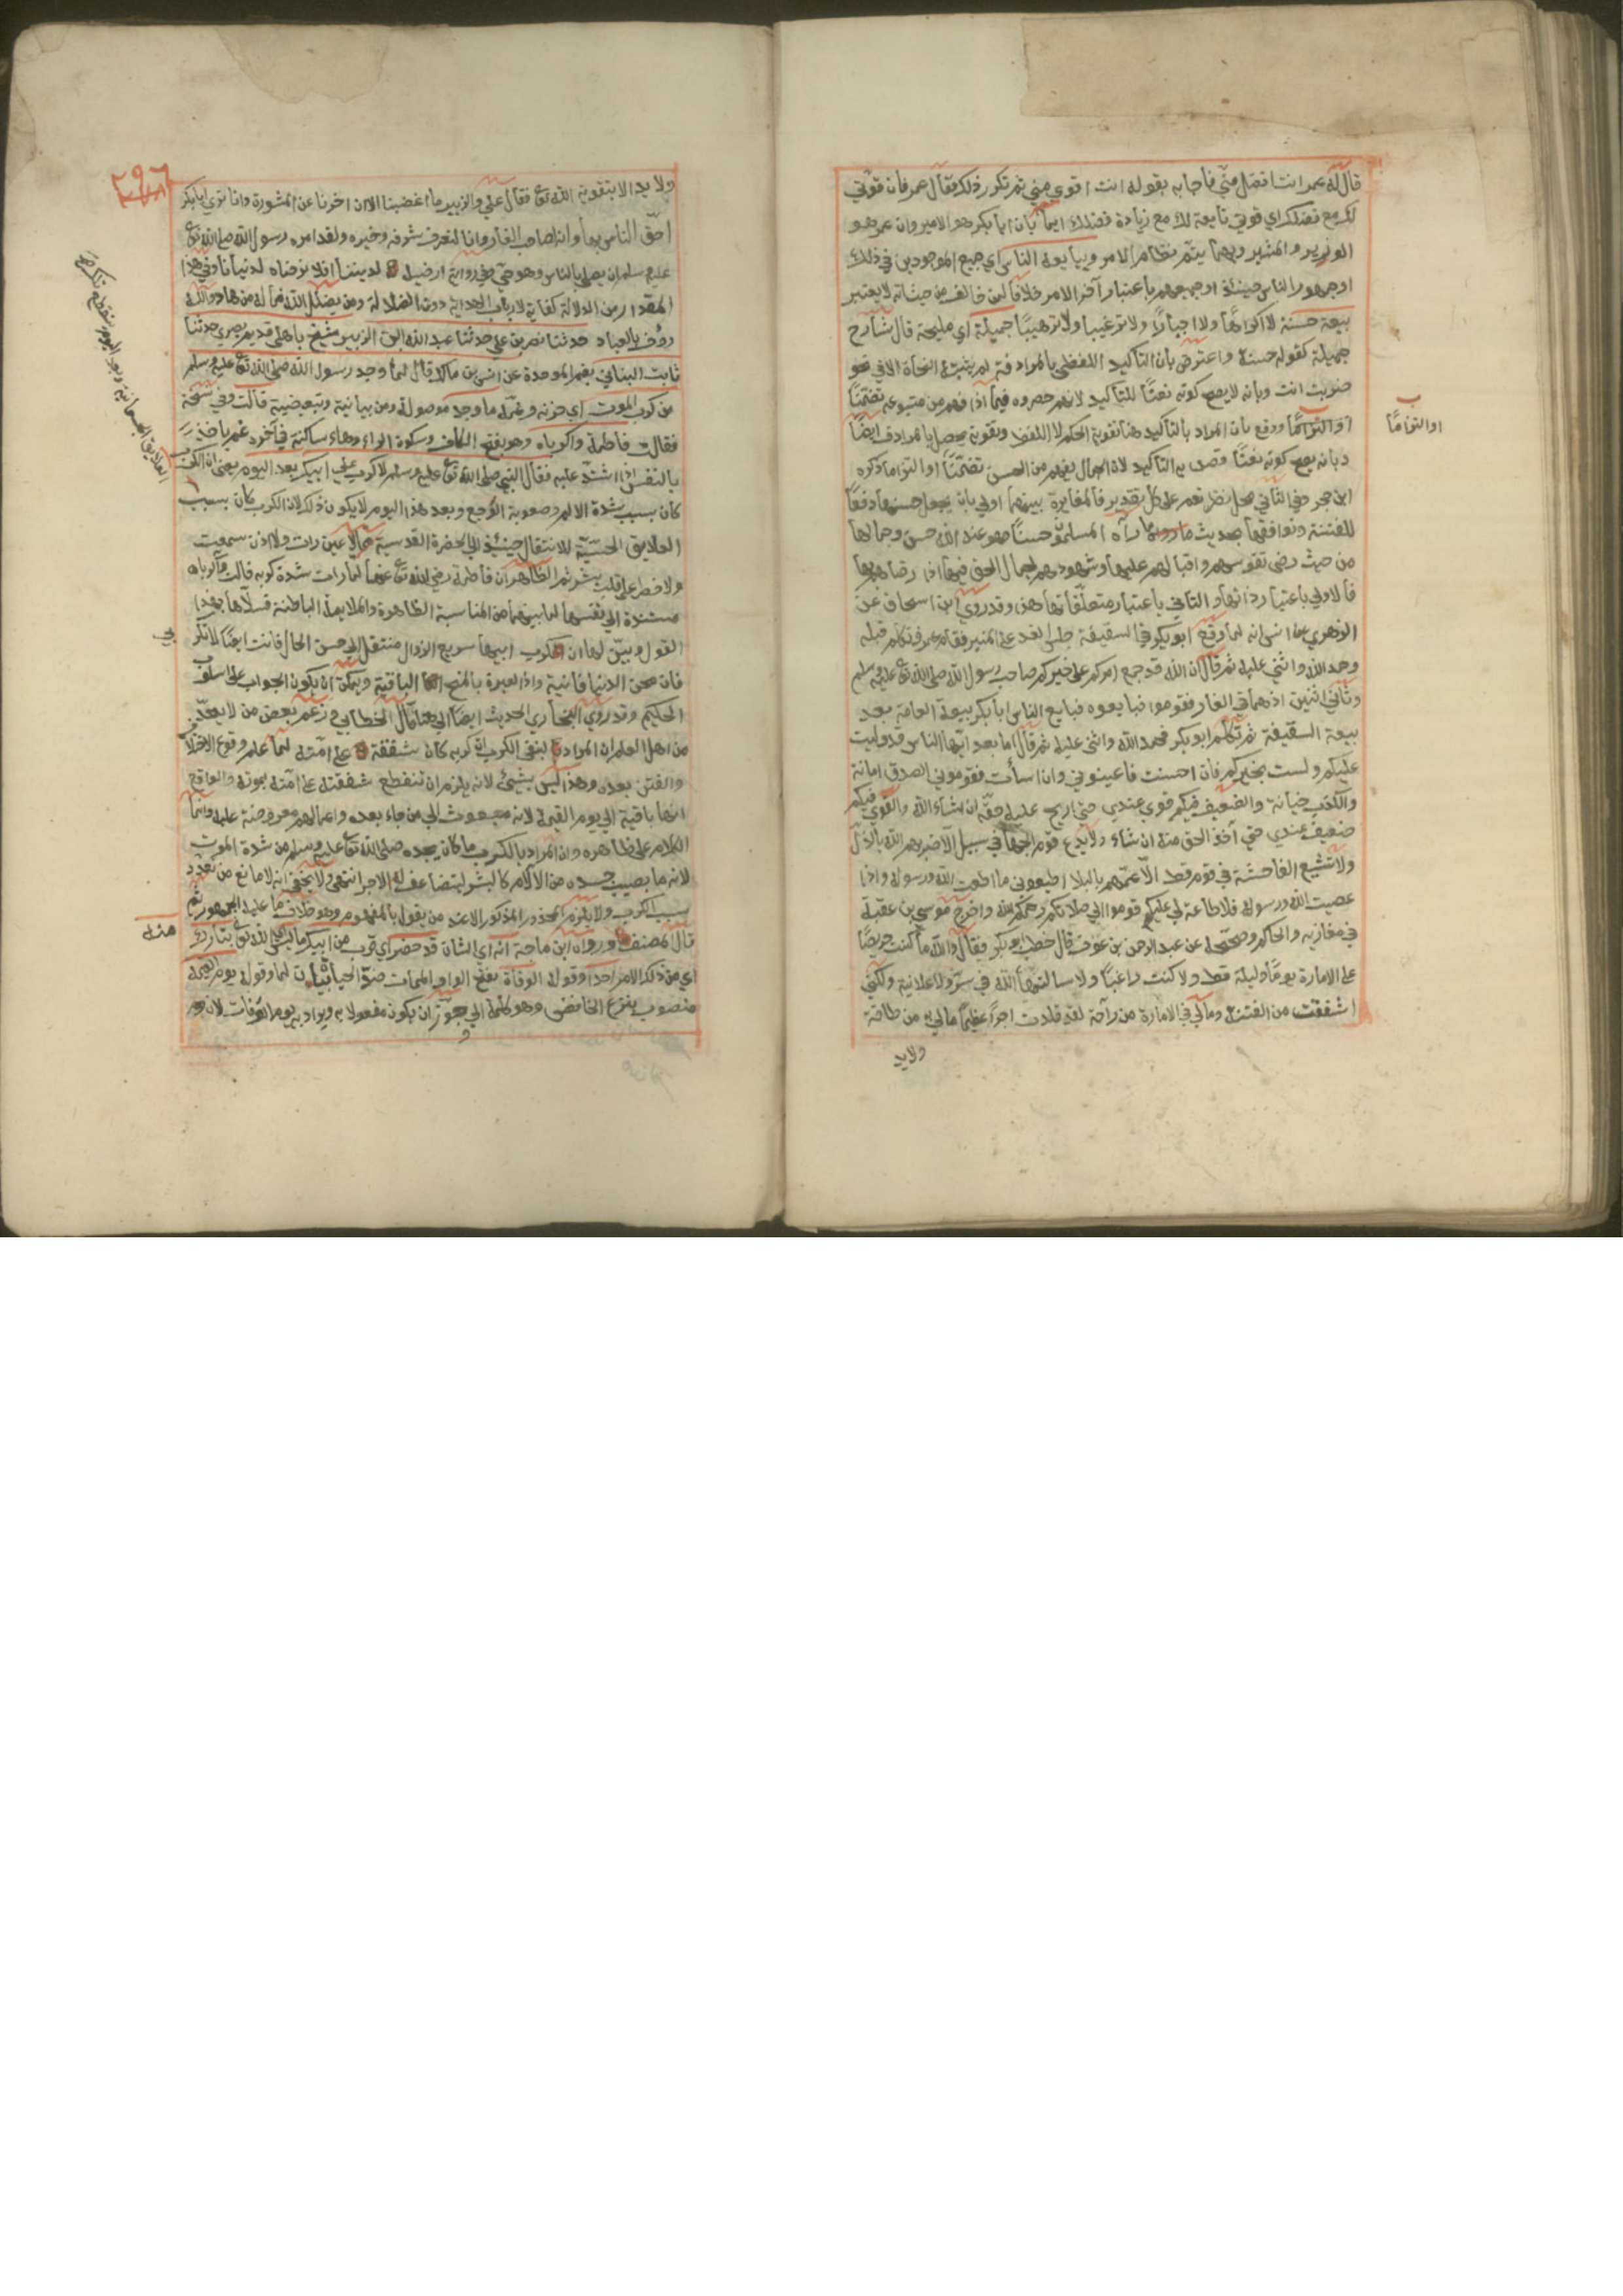 قال له عمر انت افضل مني فاجابه بقوله انت اقوى مني ثم تكرر ذلك فقال عمر فان قوتي
لك مع فضلك اي قوتي تابعة لك مع زيادة فضلك ايماء بان ابا بكر هو الامير وان عمر هو
الوزير والمشير وبهما يتم نظام الامر وبايعه الناس اي جميع الموجودين في ذلك
او جمهور الناس حينئذ او جميعهم باعتبار آخر الامر خلافا لمن خالف من حيث انه لا يعتبر
بيعة حسنة لا اكراها ولا اجبارا ولا ترغيبا ولا ترهيبا جميلة اي مليحة قال شارح
جميلة كقوله حسنة واعترض بان التأكيد اللفظي بالمرادفة لم يثبته النحاة الا في نحو
ضربت انت وبانه لا يصح كونه نعتا للتأكيد لانهم حصروه فيما اذا فهم من متبوعه تضمنا
او التزاما ودفع بان المراد بالتأكيد هنا تقوية الحكم لا اللفظ وتقويته يحصل بالمرادف ايضا
او التزاما
وبانه يصح كونه نعتا وقصد به التأكيد لان الجمال يفهم من الحسن تضمنا او التزاما ذكره
ابن حجر وفي الثاني محل نظر نعم على كل تقدير فالمغايرة بينهما اولى بان يجعل حسنها دفعا
للفتنة وتوافقها بحديث ما رآه المسلمون حسنا فهو عند الله حسن وجمالها
من حيث رضى نفوسهم واقبالهم عليها وشهودهم لجمال الحق فيها اذا رضاهم بها
فالاولى باعتبار ذاتها والثاني باعتبار متعلقاتها هذا وقد روى ابن اسحاق عن
الزهري عن انس انه لما بويع ابو بكر في السقيفة جلس الغد على المنبر فقام عمر فتكلم قبله
وحمد الله واثنى عليه ثم قال ان الله قد جمع امركم على خيركم صاحب رسول الله صلى الله تع عليه وسلم
وثاني اثنين اذ هما في الغار فقوموا فبايعوه فبايع الناس ابا بكر بيعة العامة بعد
بيعة السقيفة ثم تكلم ابو بكر فحمد الله واثنى عليه ثم قال اما بعد ايها الناس قد وليت
عليكم ولست بخيركم فان احسنت فاعينوني وان اسأت فقوموني الصدق امانة
والكذب خيانة والضعيف فيكم قوي عندي حتى اريح عليه حقه ان شاء الله والقوي فيكم
ضعيف عندي حتى آخذ الحق منه ان شاء ولا يدع قوم الجهاد في سبيل الله الا ضربهم الله بالذل
ولا تشيع الفاحشة في قوم قط الا عمهم بالبلا اطيعوني ما اطعت الله ورسوله واذا
عصيت الله ورسوله فلا طاعة لي عليكم قوموا الى صلاتكم رحمكم الله واخرج موسى بن عقبة
في مغازيه والحاكم وصححه عن عبد الرحمن بن عوف قال خطب ابو بكر فقال والله ما كنت حريصا
على الامارة يوما وليلة قط ولا كنت راغبا ولا سالتها الله في سر ولا علانية ولكني
اشفقت من الفتنة وما لي في الامارة من راحة لقد قلدت امرا عظيما ما لي به من طاقة
ولا يد
٢٩٦
ولا يد الا بتقوية الله تع فقال علي والزبير ما اغضبنا الا ان اخرنا عن المشورة وانا نرى ابا بكر
احق الناس بها وانه لصاحب الغار وانا لنعرف شرفه وخيره ولقد امره رسول الله صلى الله تع
عليه وسلم ان يصلي بالناس وهو حي وفي رواية ارضيه لديننا افلا نرضاه لدنيانا وفي هذا
المقدار من الدلالة كفاية لارباب الهداية دون الضلالة ومن يضلل الله فما له من هاد والله
رؤف بالعباد حدثنا نصر بن علي حدثنا عبد الله ابن الزبير شيخ باهلي قديم بصري حدثنا
ثابت البناني بضم الموحدة عن انس بن مالك قال لما وجد رسول الله صلى الله تع عليه وسلم
من كرب الموت اي حزنه وغمه ما وجد موصولة ومن بيانية وتبعيضية قالت وفي نسخة
فقالت فاطمة واكرباه وهو بفتح الكاف وسكون الراء وهاء ساكنة في آخره غم ياخذ
بالنفس اذا اشتد عليه فقال النبي صلى الله تع عليه وسلم لا كرب على ابيك بعد اليوم يعني ان الكرب
كان بسبب شدة الالم وصعوبة الوجع وبعد هذا اليوم لا يكون ذلك لان الكرب كان بسبب
العلايق الجسمانية وبعد اليوم تنقطع تلك
العلايق الحسية للانتقال حينئذ الى الحضرة القدسية مما لا عين رات ولا اذن سمعت
ولا خطر على قلب بشر ثم الظاهر ان فاطمة رضي الله تع عنها لما رات شدة كربه قالت واكرباه
مسندة الى نفسها لما بينهما من المناسبة الظاهرة والملايمة الباطنة فسلاها بهذا
القول وبين لها ان كرب ابيها سريع الزوال منتقل الى حسن الحال فانت ايضا لا تكربي
فان محن الدنيا فانية واذا العبرة بالمنح الباقية ويمكن ان يكون الجواب على اسلوب
الحكيم وقد روى البخاري الحديث ايضا الى هنا قال الخطابي زعم بعض من لا يعد
من اهل العلم ان المراد بنفي الكرب ان كربه كان شفقة على امته لما علم وقوع الاختلا
والفتن بعده وهذا ليس بشيء لانه يلزم ان تنقطع شفقته على امته بموته والواقع
انها باقية الى يوم القيمة لانه مبعوث الى من جاء بعده واعمالهم معروضة عليه وانما
الكلام على ظاهره وان المراد بالكرب ما كان يجده صلى الله تع عليه وسلم من شدة الموت
لانه ما يصيب جسده من الآلام كالبشر ليتضاعف له الاجر انتهى ولا يخفى انه لا مانع من تعدد
سبب الكرب ولا يلزم المحذور المذكور الا عند من يقول بالمفهوم وهو خلاف ما عليه الجمهور ثم
قال المصنف ورواه ابن ماجة انه اي الشان قد حضر اي قرب من ابيك ما ليس الله تع بتارك
منه
اي من ذلك الامر احدا وقوله الوفاة بفتح الواو الممات ضد الحياة لما وقوله يوم القيمة
منصوب بنزع الخافض وهو كلمة الى جوز ان يكون مفعولا به ويراد به يوم الوفات لان